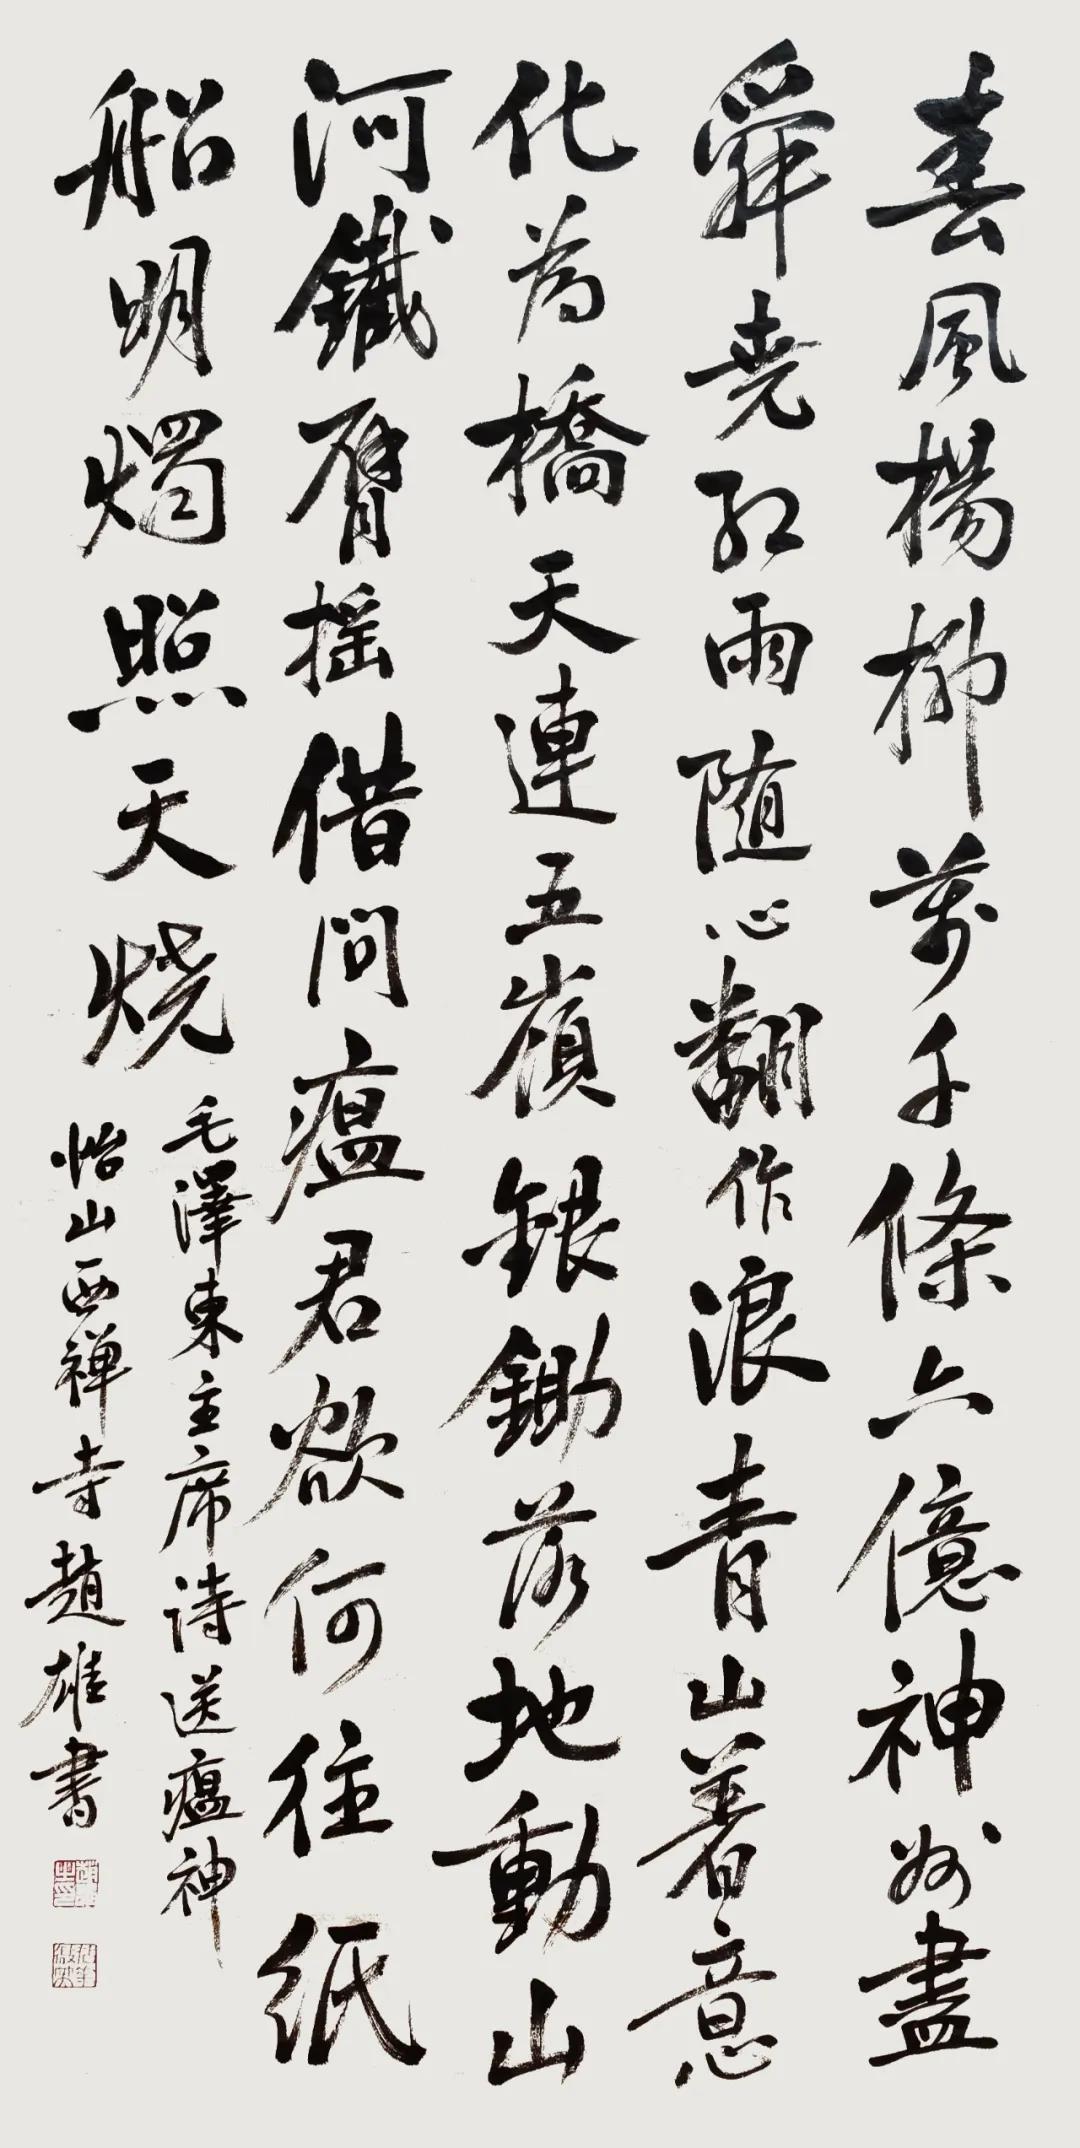 春風楊柳萬千條六億神州盡
舜堯红雨随心翻作浪青山著意
化为橋天連五嶺銀鋤落地動山
河鐵臂摇借问瘟君欲何往紙
船明燭照天烧
毛澤東主席诗送瘟神
怡山西禅寺趙雄書